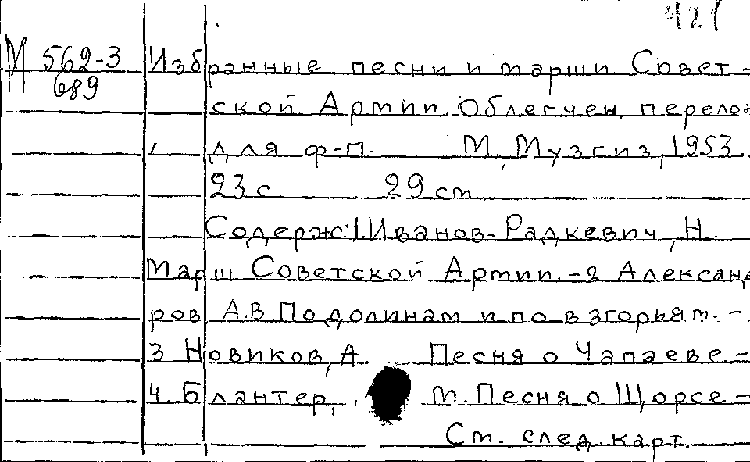 421
М 562-3 Избранные песни и марши Совет-
689
ской Армии. Облегчен. перелож
для ф-п. М., Музгиз, 1953.
23 с 29 см
Содерж: 1. Иванов-Радкевич, Н.
Марш Советской Армии. - 2 Александ
ров А.В. По долинам и по взгорьям. -
3 Новиков, А. Песня о Чапаеве -
4. Блантер, М. Песня о Щорсе -
См. след. карт.